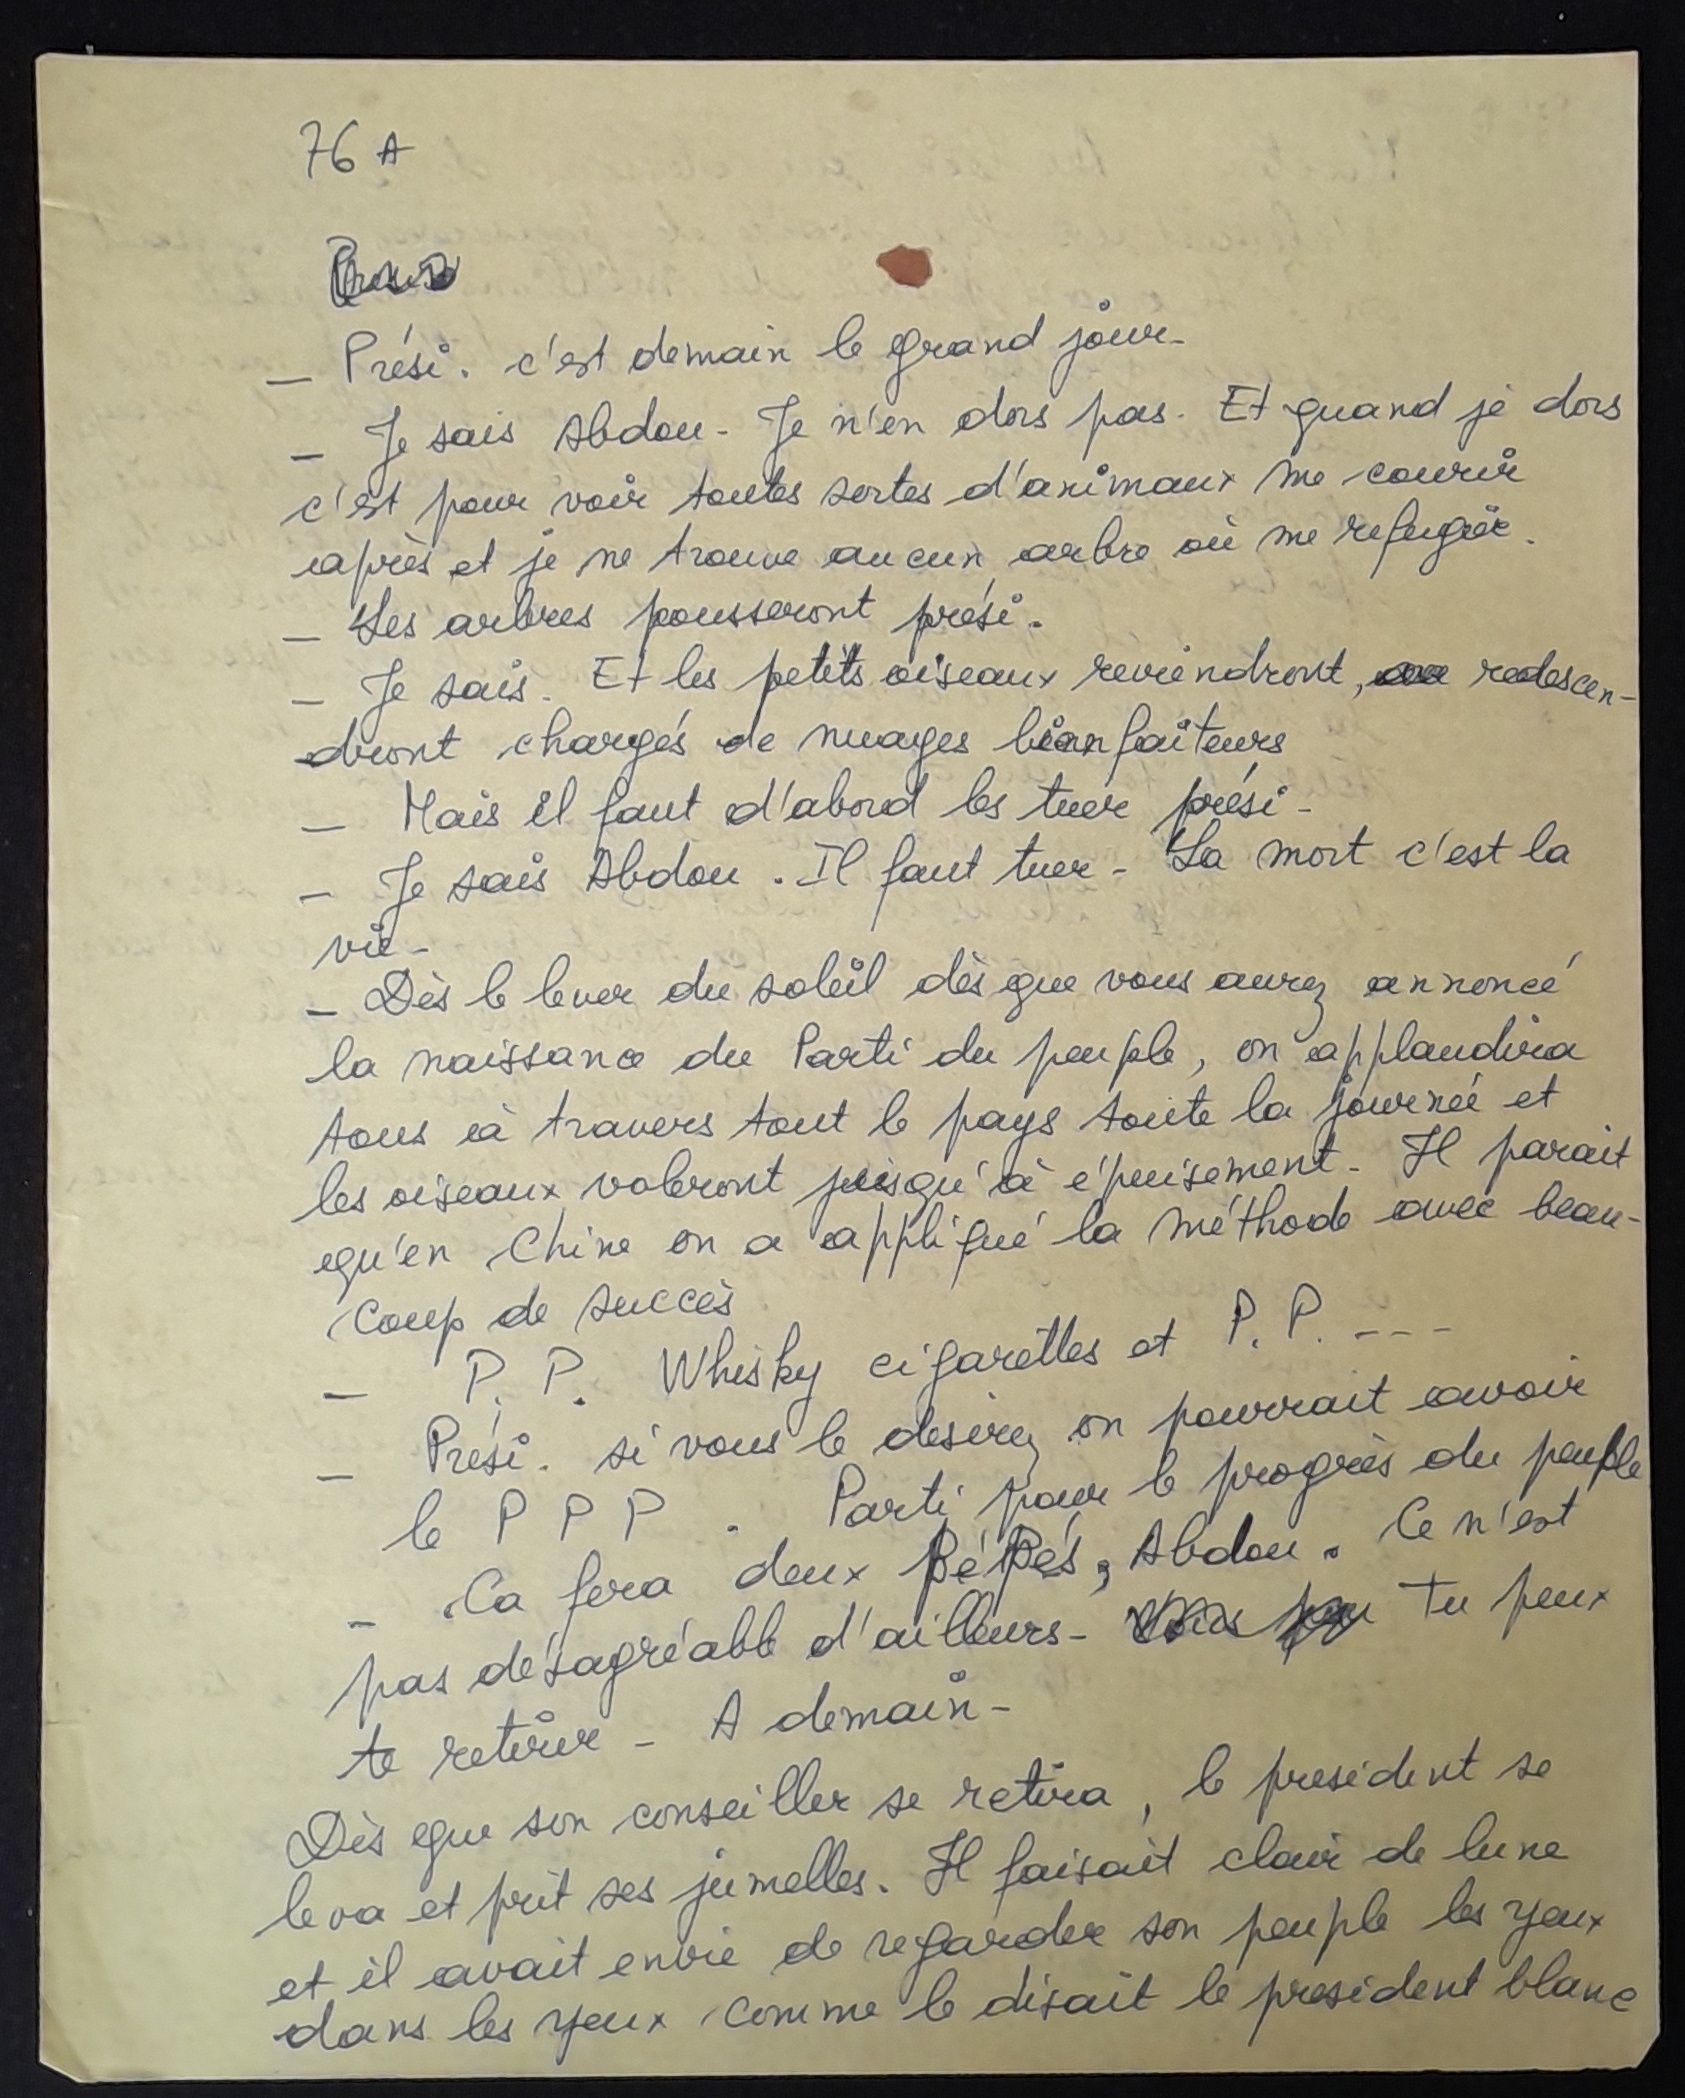 76 A
— Prési. c'est demain le grand jour-
— Je sais Abdou - Je n'en dors pas. Et quand je dors
c'est pour voir toutes sortes d'animaux me courir
après et je ne trouve aucun arbre où me refugier.
— Les arbres pousseront prési.
— Je sais. Et les petits oiseaux reviendront, redescen-
dront chargés de nuages bienfaiteurs
— Mais il faut d'abord les tuer prési -
— Je sais Abdou. Il faut tuer - La mort c'est la
vie -
— Dès le lever du soleil dès que vous aurez annoncé
la naissance du Parti du peuple, on applaudira
tous à travers tout le pays toute la journée et
les oiseaux voleront jusqu'à épuisement - Il parait
qu'en Chine on a appliqué la méthode avec beau-
coup de succès
— P. P. Whisky cigarettes et P. P. ---
— Prési. si vous le desirez on pourrait avoir
le P P P. Parti pour le progrès du peuple
— Ca fera deux pépés, Abdou. Ce n'est
pas désagréable d'ailleurs - Tu peux
te retirer - A demain -
Dès que son conseiller se retira, le president se
leva et prit ses jumelles. Il faisait clair de lune
et il avait envie de regarder son peuple les yeux
dans les yeux comme le disait le president blanc